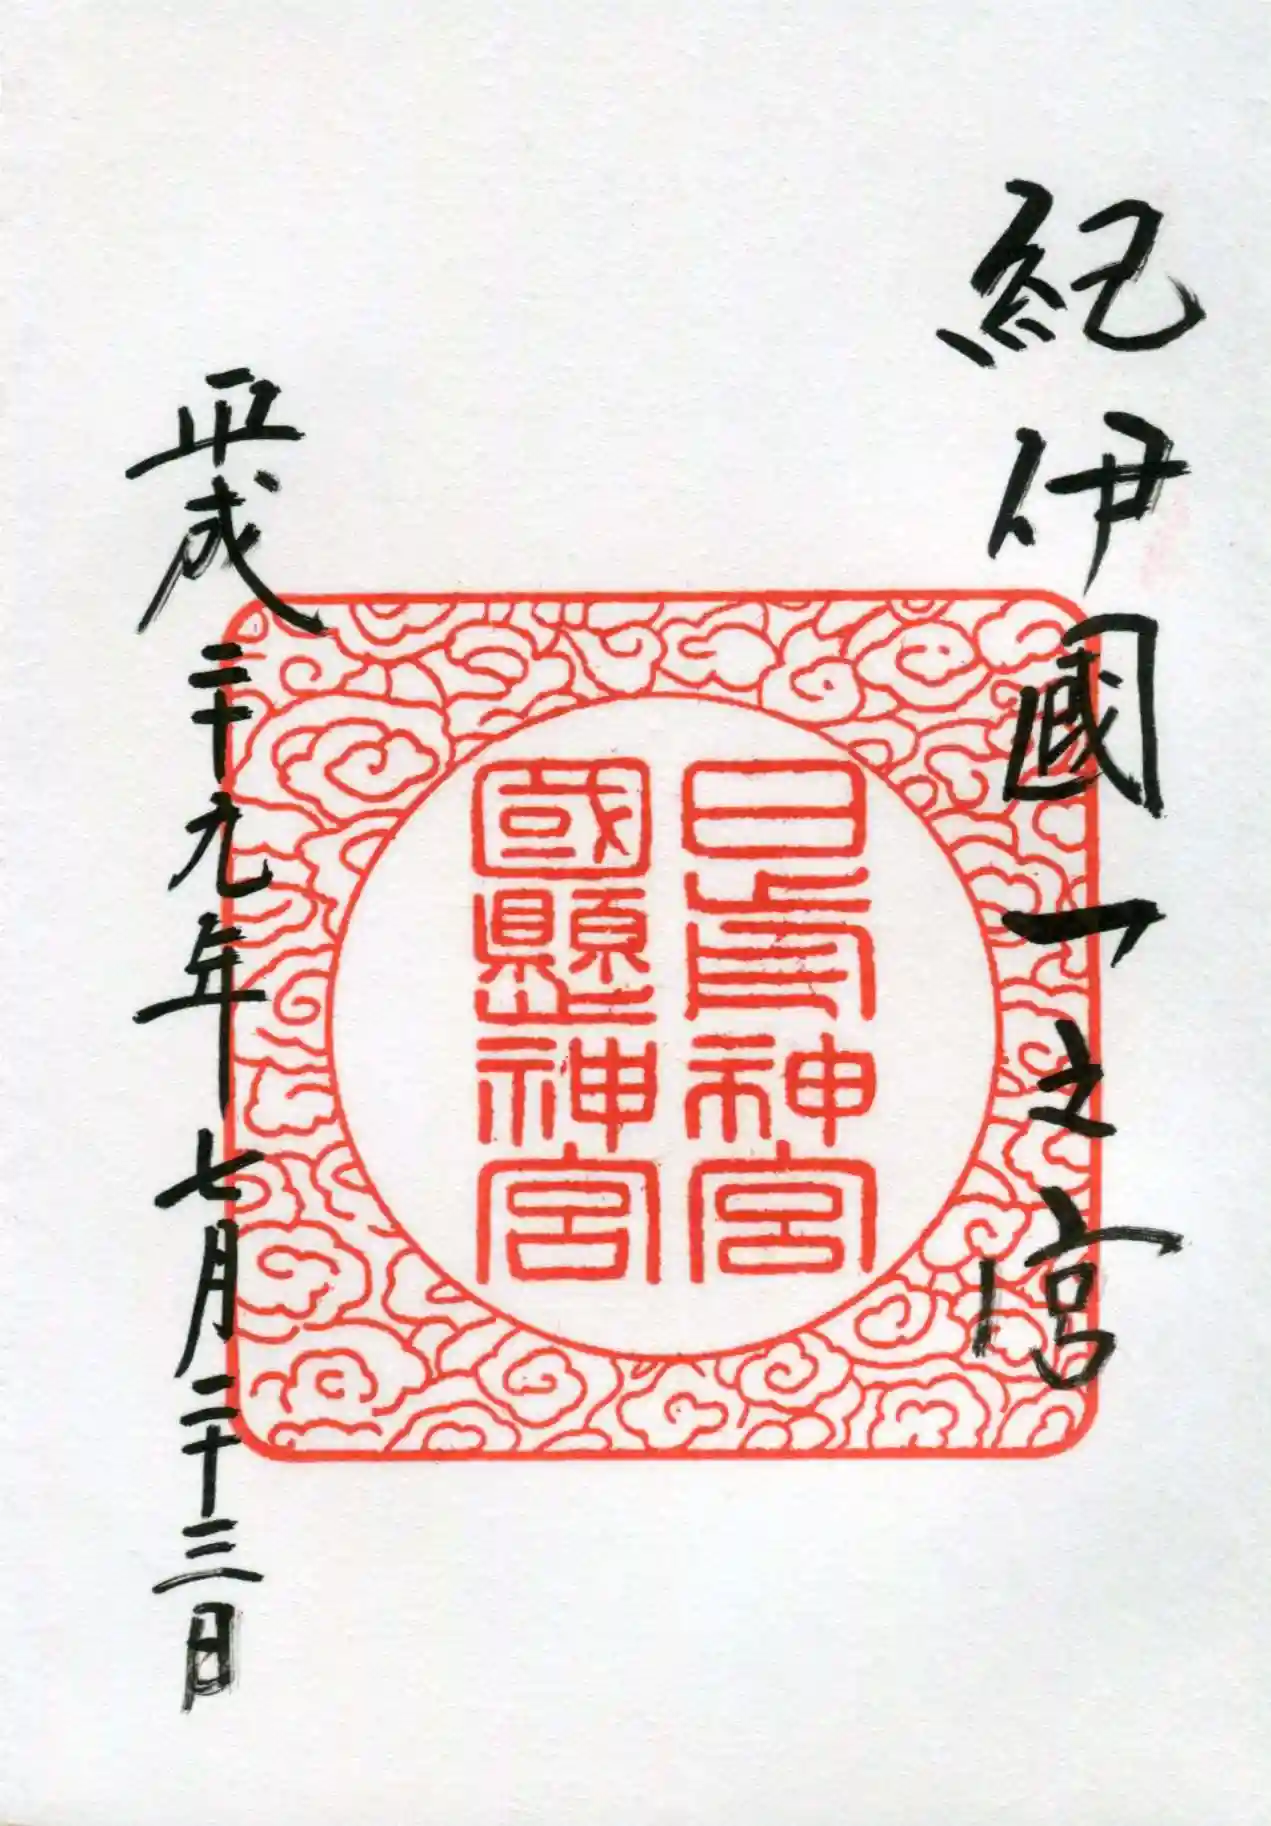 紀伊國一之宮
日前神宮
國懸神宮
平成二十九年七月二十三日